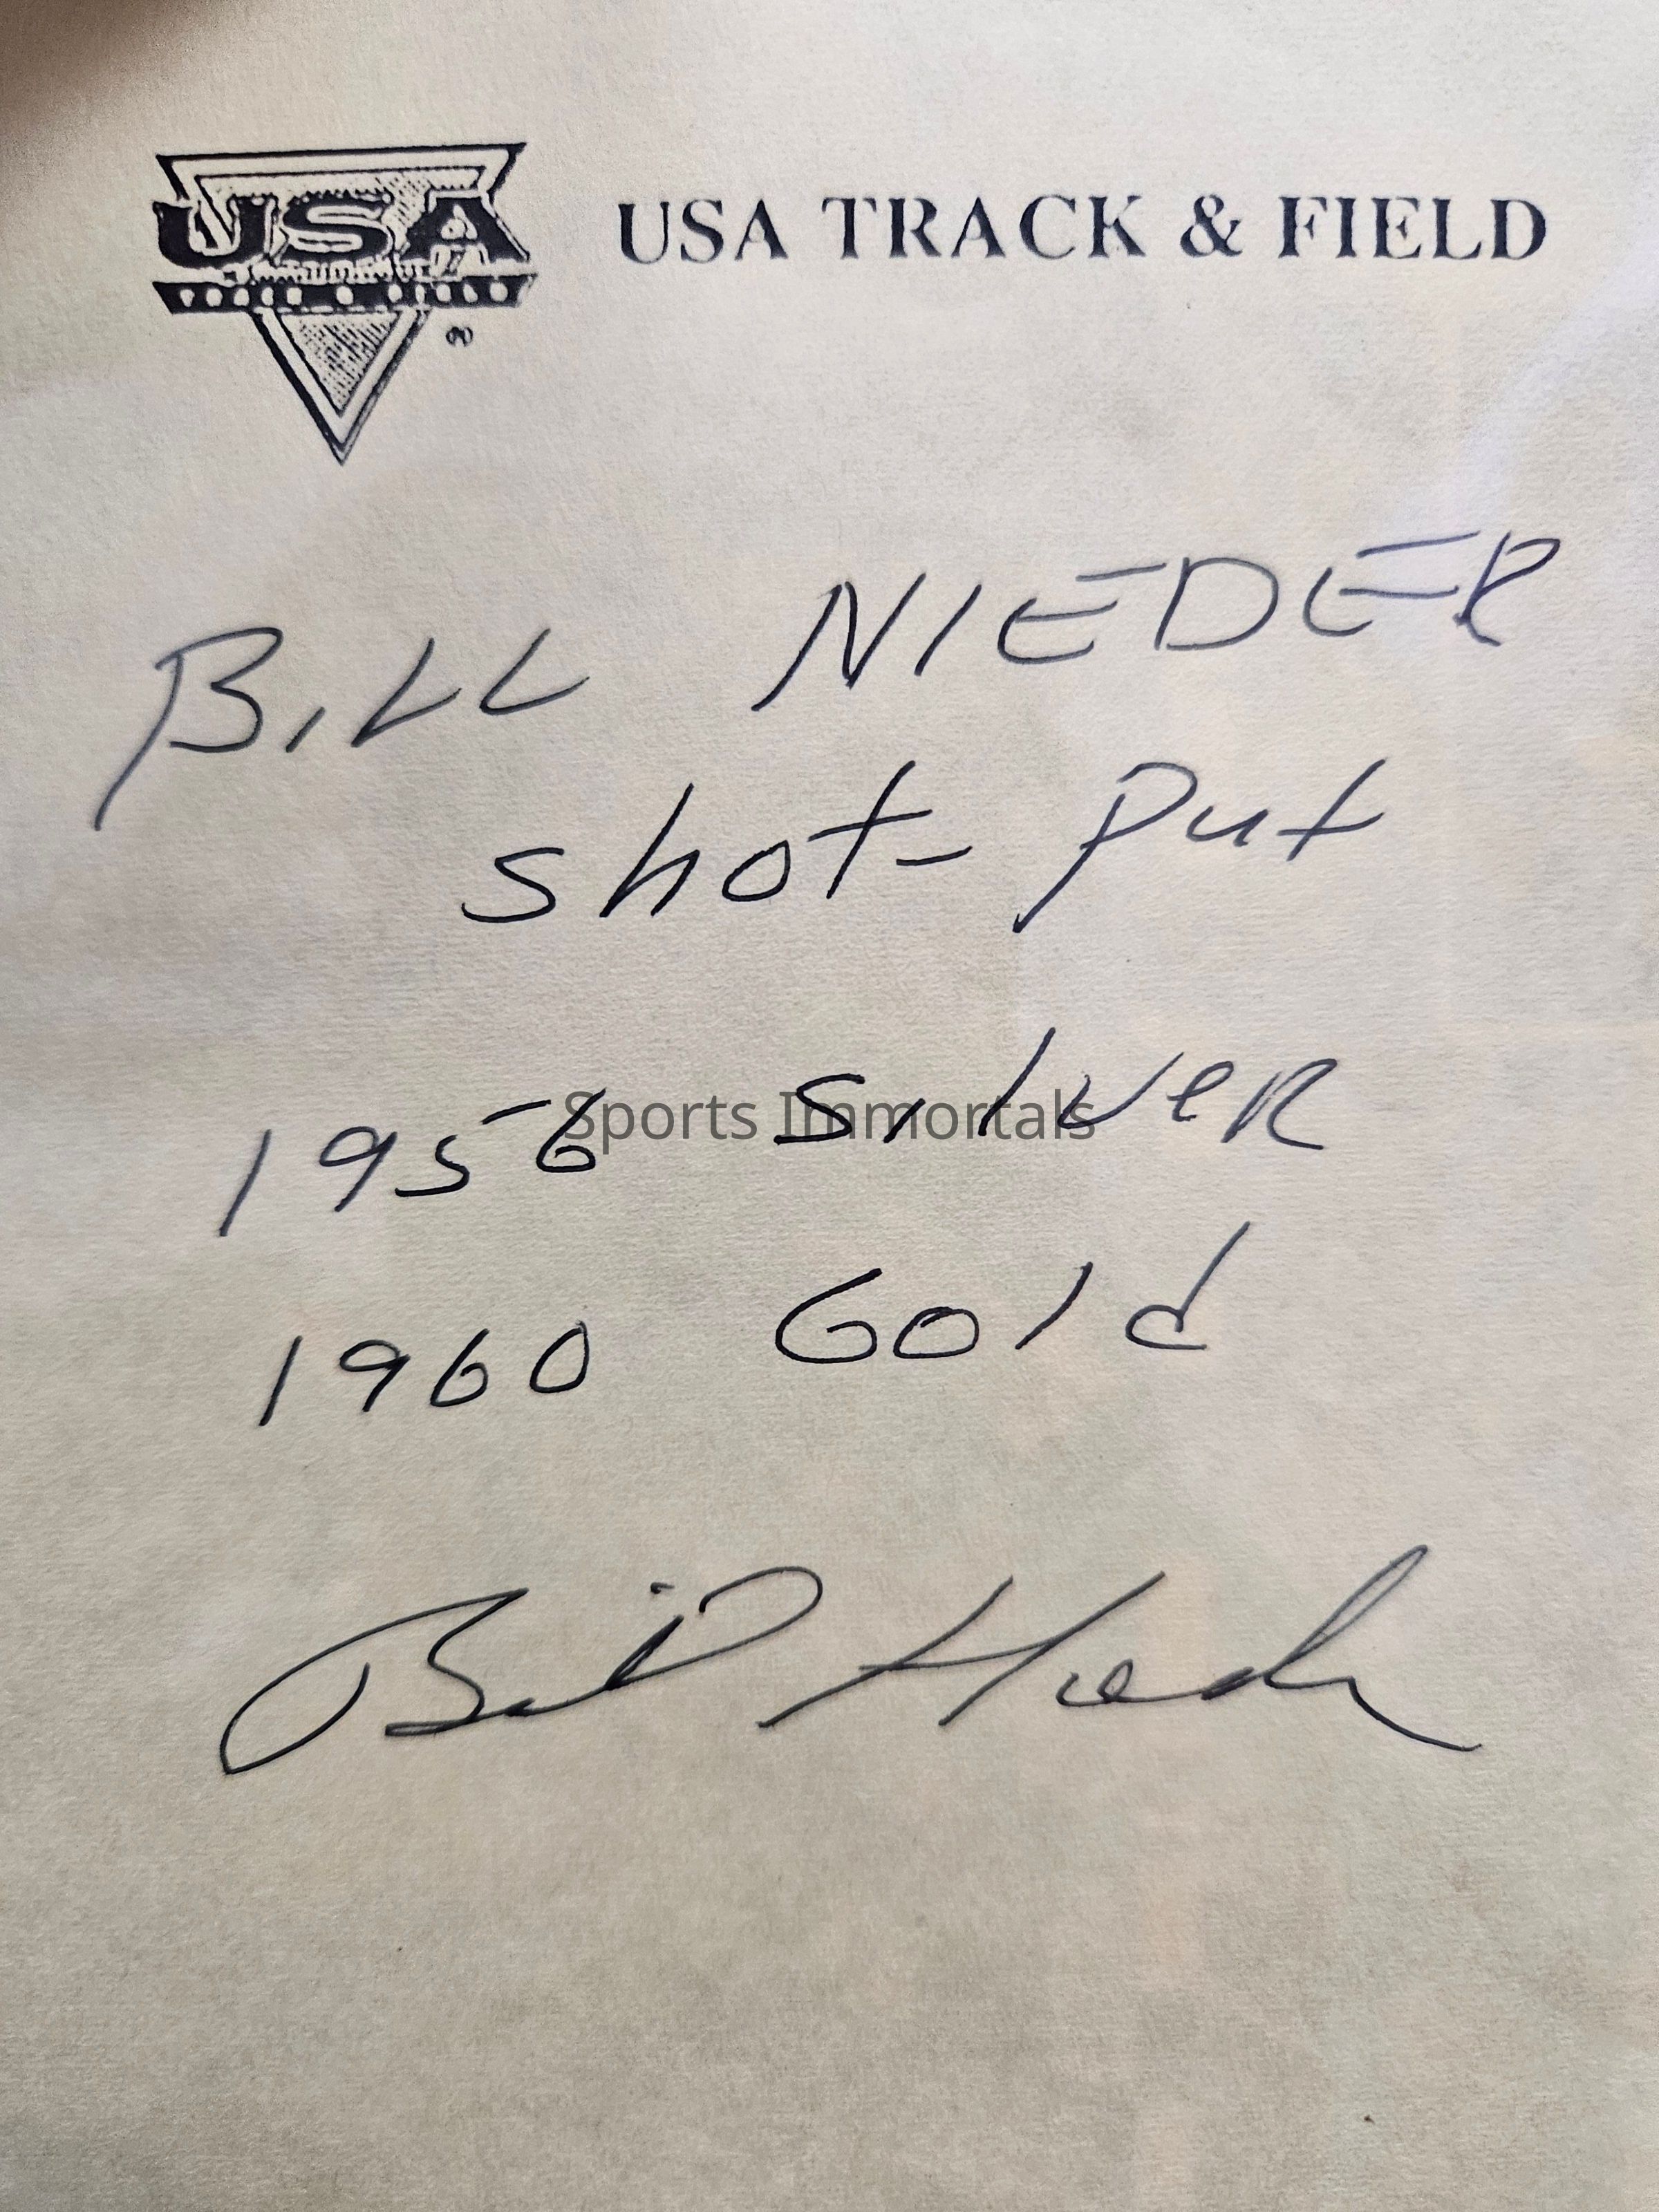 USA
USA TRACK & FIELD
BiLL NIEDER
shot-Put
1956 SilveR
1960 Gold
Sports Immortals
Bill